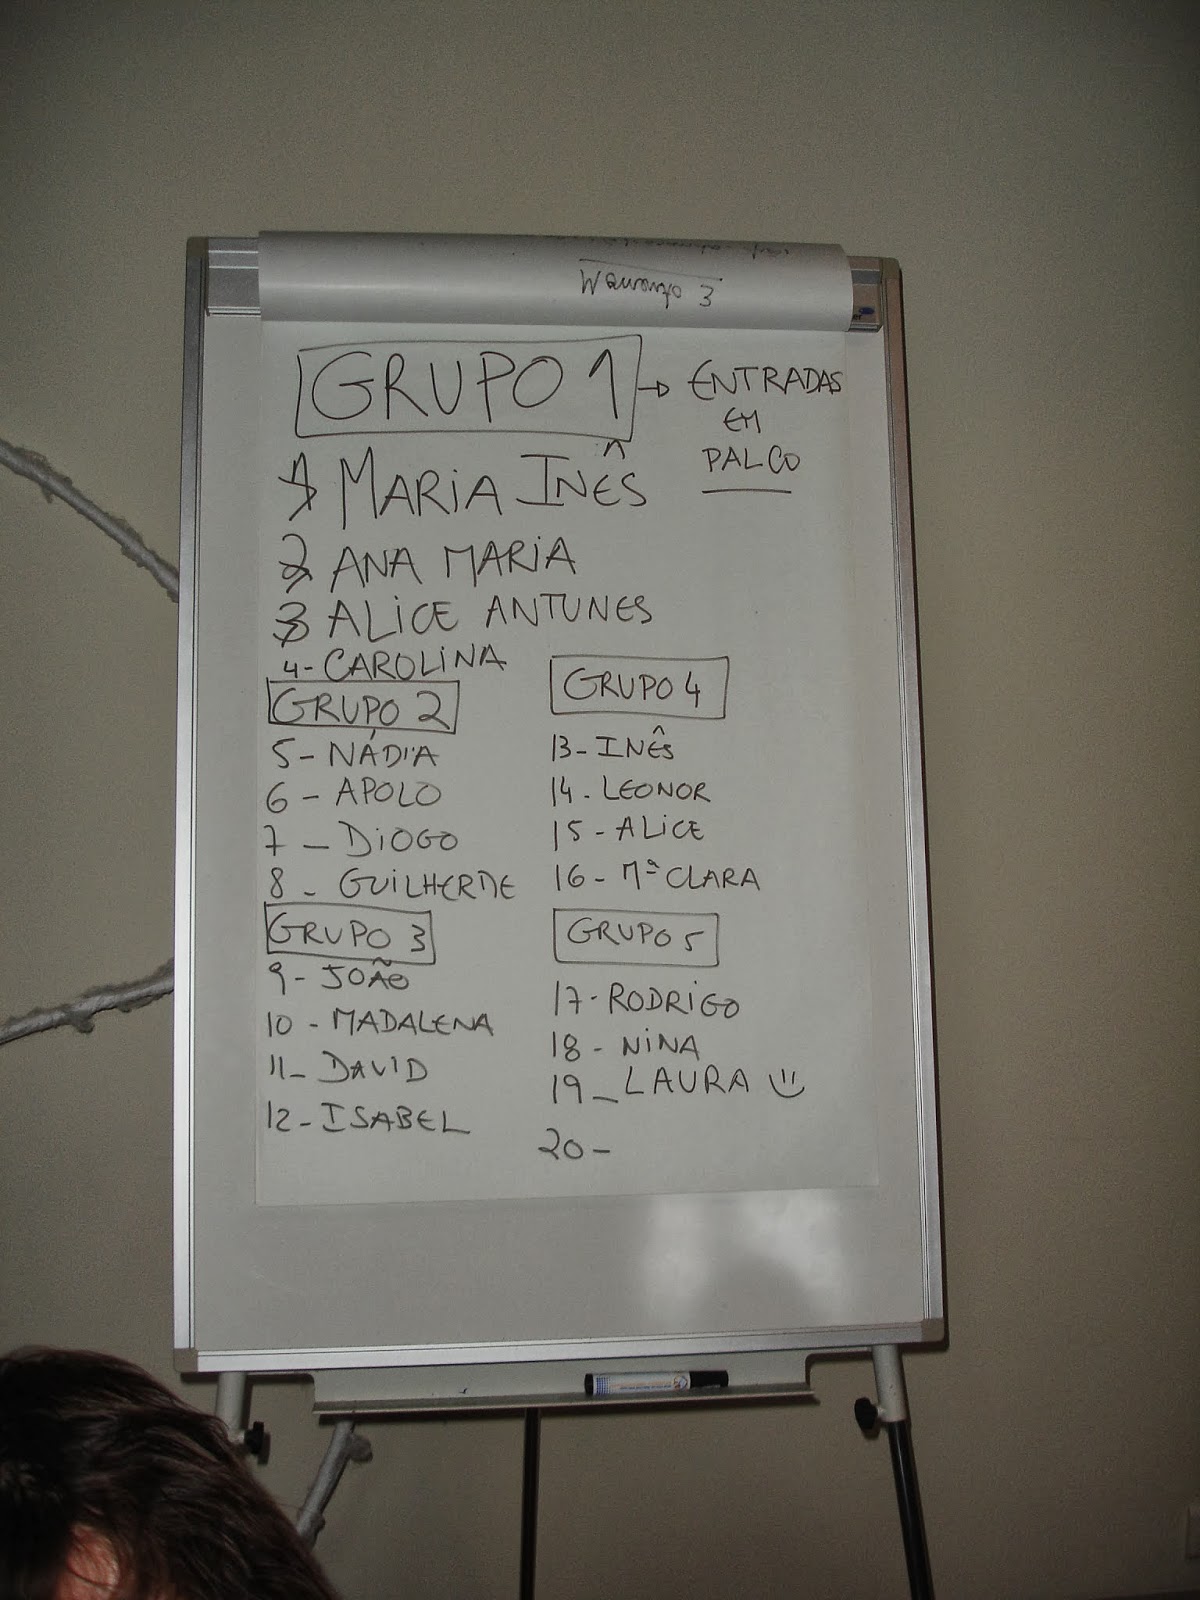 Momento 3
GRUPO 1 → ENTRADAS
EM
PALCO
1 MARIA INÊS
2 ANA MARIA
3 ALICE ANTUNES
4- CAROLINA
GRUPO 2
5- NÁDIA
6- APOLO
7- DIOGO
8- GUILHERME
GRUPO 3
9- JOÃO
10- MADALENA
11- DAVID
12- ISABEL
GRUPO 4
13- INÊS
14- LEONOR
15- ALICE
16- Mª CLARA
GRUPO 5
17- RODRIGO
18- NINA
19- LAURA
20-